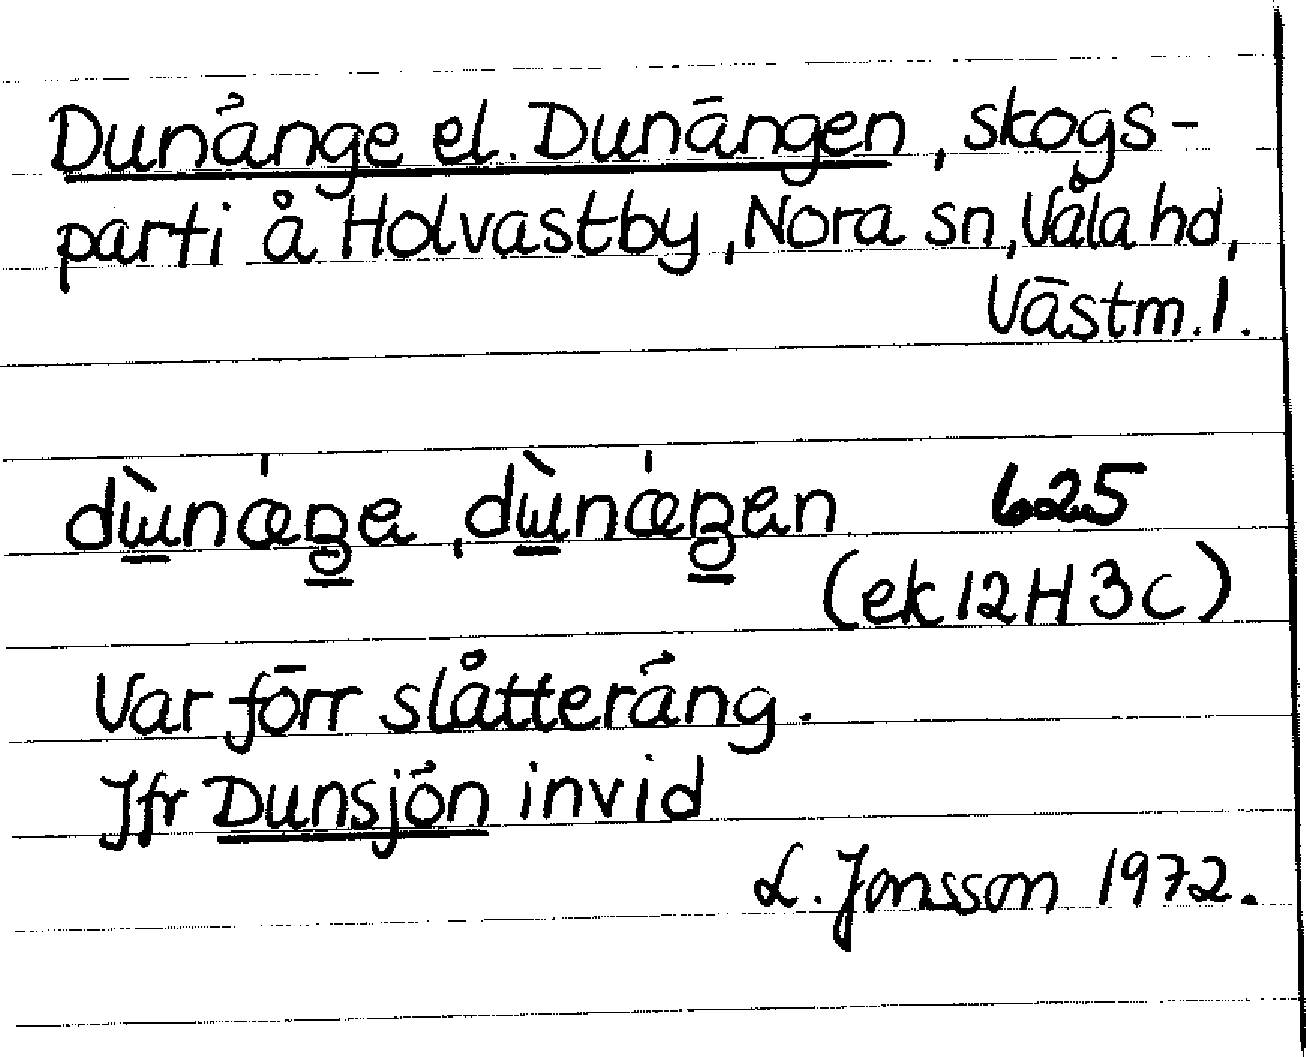 Dunänge el. Dunängen, skogs-
parti å Holvastby, Nora sn, Våla hd,
Västm. l.
dɯ̀nǽŋe, dɯ̀nǽŋen 625
(ek 12H 3c)
Var förr slåtteräng.
Jfr Dunsjön invid
L. Jonsson 1972.